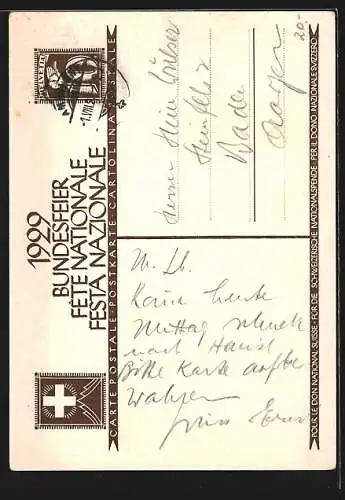 1929
BUNDESFEIER
FÊTE NATIONALE
FESTA NAZIONALE
CARTE POSTALE·POSTKARTE·CARTOLINA POSTALE
HELVETIA
20.-
Herrn Hein
Steinfeld 2
Baden
Aargau
M. Lb.
Kann heute
Mittag schnell
nach Hause
Bitte Karte aufbe
wahren
Gruss
POUR LE DON NATIONAL SUISSE·FÜR DIE SCHWEIZERISCHE NATIONALSPENDE·PER IL DONO NAZIONALE SVIZZERO